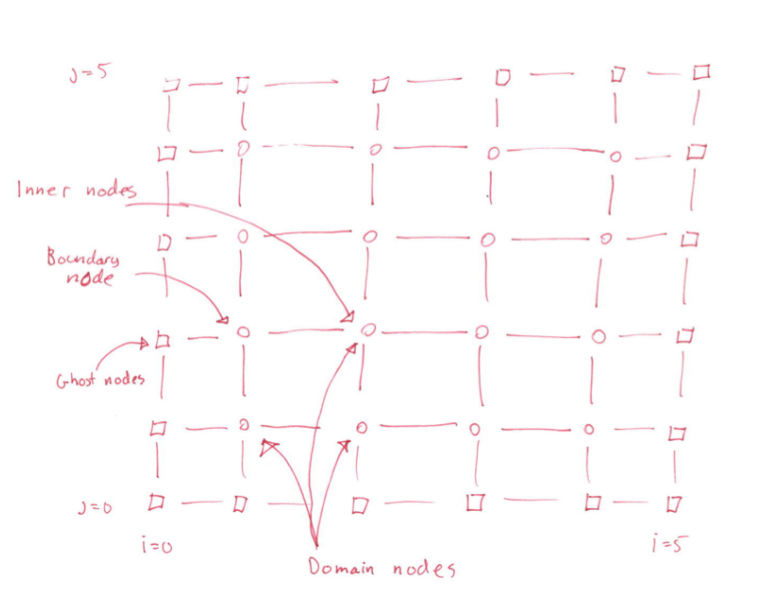 J=5
Inner nodes
Boundary
node
Ghost nodes
J=0
i=0
i=5
Domain nodes